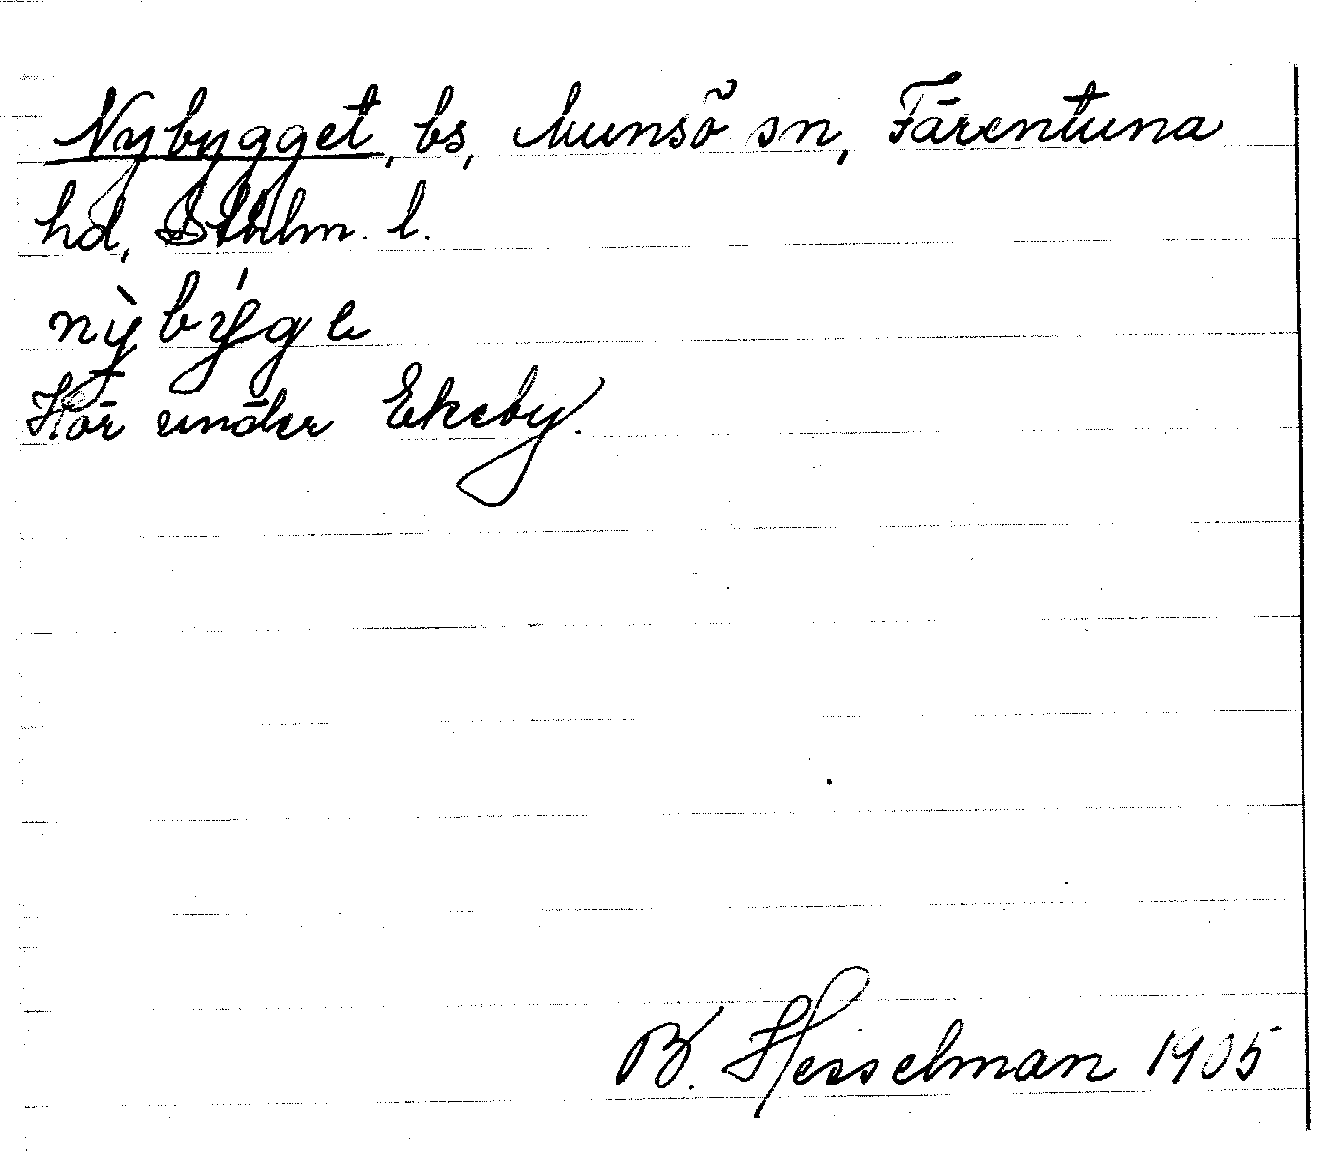 Nybygget, bs, Munsö sn, Färentuna
hd, Sthlm. l.
nỳbýge
Hör under Ekeby.
B. Hesselman 1905